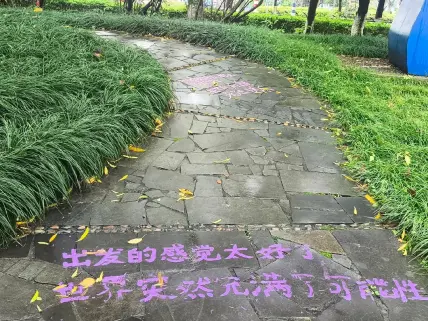 出发的感觉太好了
世界突然充满了可能性